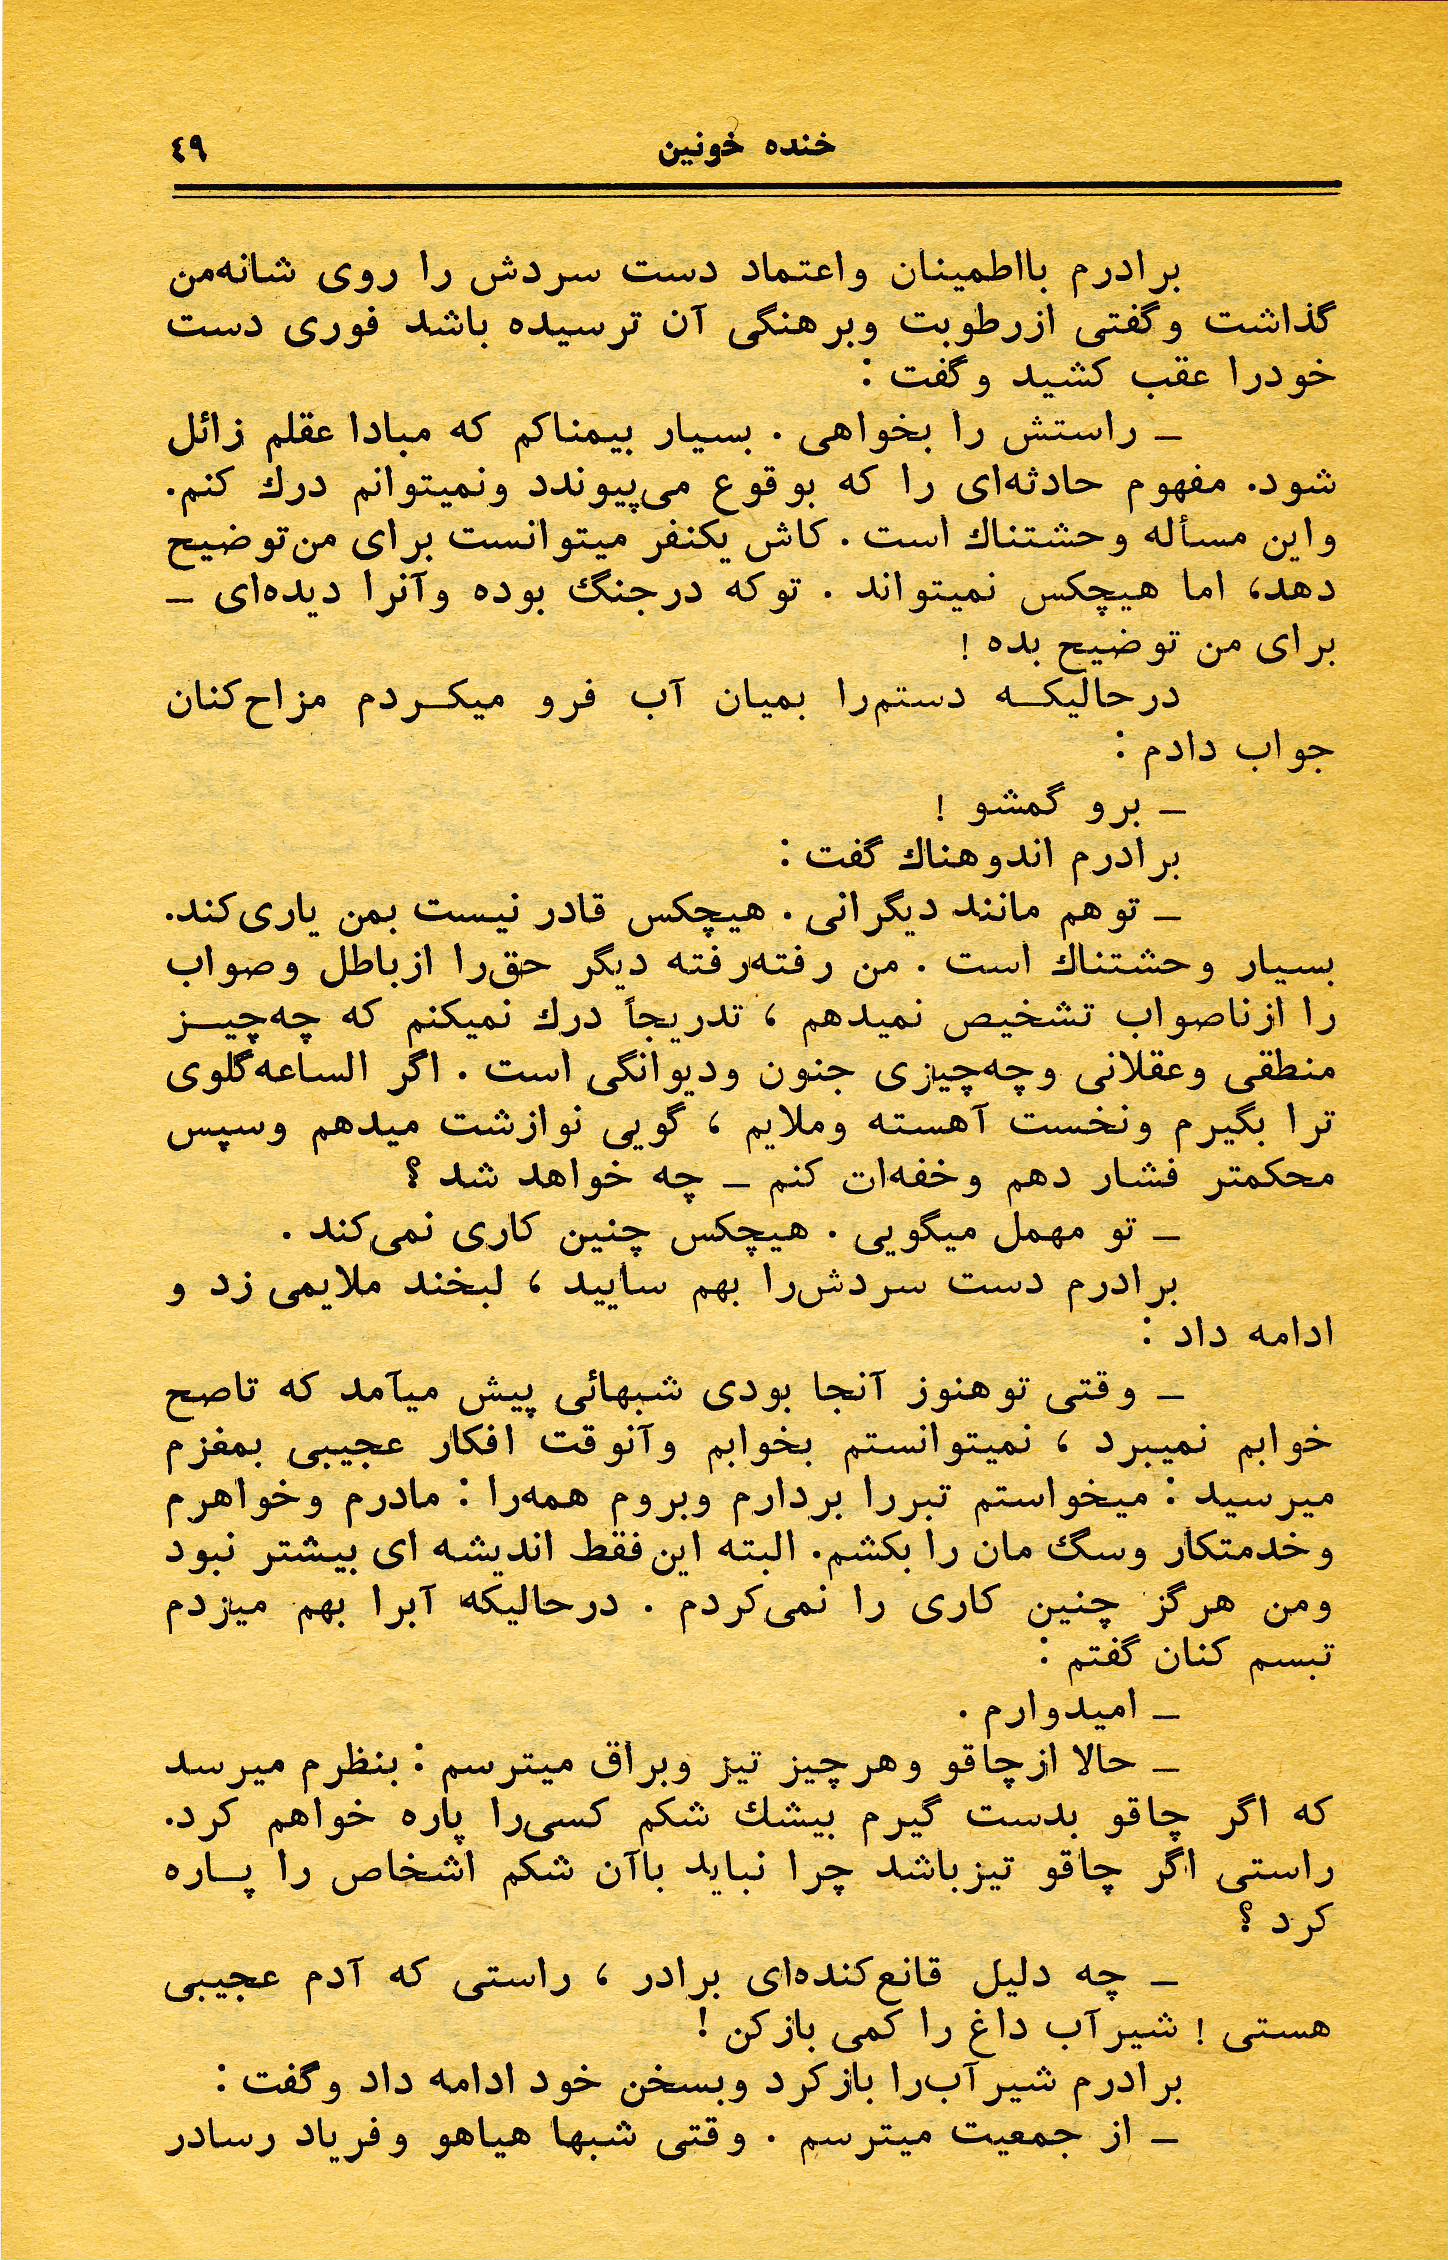 خنده خونین ٤٩
برادرم بااطمینان واعتماد دست سردش را روی شانه‌من
گذاشت وگفتی ازرطوبت وبرهنگی آن ترسیده باشد فوری دست
خودرا عقب کشید وگفت :
ـ راستش را بخواهی . بسیار بیمناکم که مبادا عقلم زائل
شود. مفهوم حادثه‌ای را که بوقوع می‌پیوندد ونمیتوانم درك کنم.
واین مسأله وحشتناك است . کاش یکنفر میتوانست برای من‌توضیح
دهد، اما هیچکس نمیتواند . توکه درجنگ بوده وآنرا دیده‌ای ـ
برای من توضیح بده !
درحالیکـه دستم‌را بمیان آب فرو میکـردم مزاح‌کنان
جواب دادم :
ـ برو گمشو !
برادرم اندوهناك گفت :
ـ توهم مانند دیگرانی . هیچکس قادر نیست بمن یاری‌کند.
بسیار وحشتناك است . من رفته‌رفته دیگر حق‌را ازباطل وصواب
را ازناصواب تشخیص نمیدهم ، تدریجاً درك نمیکنم که چه‌چیـز
منطقی وعقلانی وچه‌چیزی جنون ودیوانگی است . اگر الساعه‌گلوی
ترا بگیرم ونخست آهسته وملایم ، گویی نوازشت میدهم وسپس
محکمتر فشار دهم وخفه‌ات کنم ـ چه خواهد شد ؟
ـ تو مهمل میگویی . هیچکس چنین کاری نمی‌کند .
برادرم دست سردش‌را بهم سایید ، لبخند ملایمی زد و
ادامه داد :
ـ وقتی توهنوز آنجا بودی شبهائی پیش میآمد که تاصح
خوابم نمیبرد ، نمیتوانستم بخوابم وآنوقت افکار عجیبی بمغزم
میرسید : میخواستم تبررا بردارم وبروم همه‌را : مادرم وخواهرم
وخدمتکار وسگ مان را بکشم. البته این‌فقط اندیشه ای بیشتر نبود
ومن هرگز چنین کاری را نمی‌کردم . درحالیکه آبرا بهم میزدم
تبسم کنان گفتم :
ـ امیدوارم .
ـ حالا ازچاقو وهرچیز تیز وبراق میترسم : بنظرم میرسد
که اگر چاقو بدست گیرم بیشك شکم کسی‌را پاره خواهم کرد.
راستی اگر چاقو تیزباشد چرا نباید باآن شکم اشخاص را پـاره
کرد ؟
ـ چه دلیل قانع‌کننده‌ای برادر ، راستی که آدم عجیبی
هستی ! شیرآب داغ را کمی بازکن !
برادرم شیرآب‌را بازکرد وبسخن خود ادامه داد وگفت :
ـ از جمعیت میترسم . وقتی شبها هیاهو وفریاد رسادر